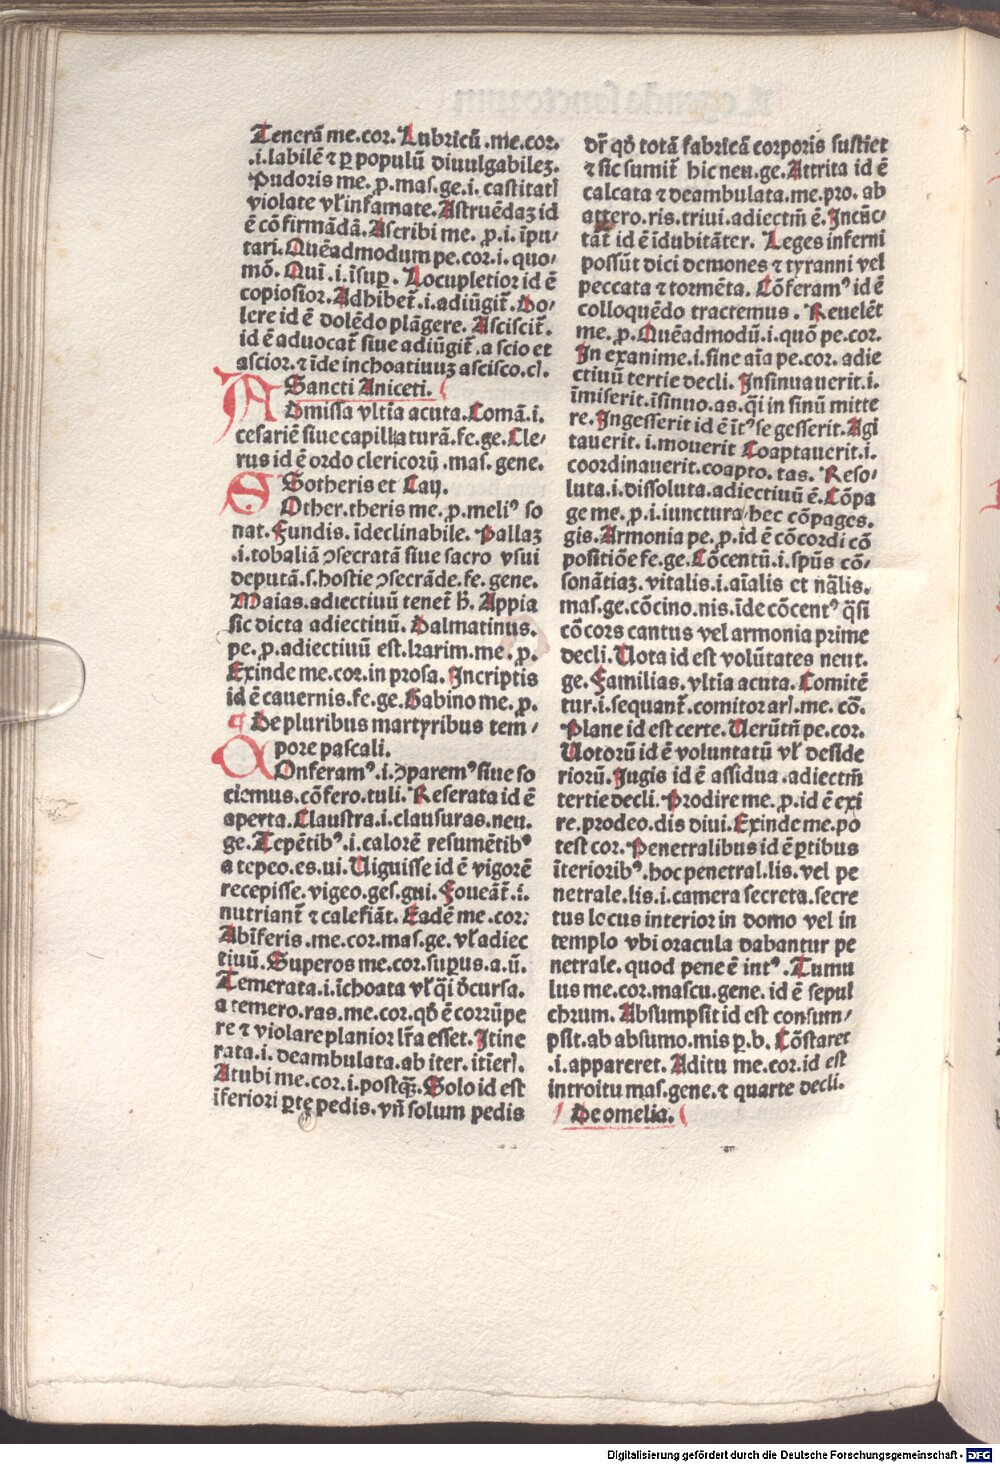 Tenerã me.cor. Lubricũ .me.cor.
.i.labilẽ ⁊ ꝑ populũ diuulgabileʒ.
Pudoris me. p̱.mas.ge.i. castitatꝭ
violate vꝉ infamate. Astruẽdaʒ id
ẽ cõ firmãdã. Ascribi me. p̱.i. ĩpu⸗
tari. Quẽadmodum pe.cor.i. quo⸗
mõ. Qui.i.ĩsuꝑ. Locupletior id ẽ
copiosior. Adhibet̃.i.adiũgit̃. Do⸗
lere id ẽ dolẽdo plãgere. Asciscit̃.
id ẽ aduocat̃ siue adiũgit̃ .a scio et
ascior.⁊ ĩde inchoatiuuʒ ascisco.cꝉ.
Sancti Aniceti.
ADmissa vltĩa acuta. Comã.i.
cesariẽ siue capillaturã.fe.ge. Cle⸗
rus id ẽ ordo clericorũ .mas. gene.
Sotheris et Cay.
SOther.theris me. p̱.meliꝰ so
nat. Fundis. ĩdeclinabile. Pallaʒ
.i.tobaliã ↄsecratã siue sacro vsui
deputã.s.hostie ↄsecrãde.fe. gene.
Maias.adiectiuũ tenet h̃. Appia
sic dicta adiectiuũ. Dalmatinus.
pe. p̱.adiectiuũ est.lrarim.me. p̱.
Exinde me.cor.in prosa. Incriptis
id ẽ cauernis.fe.ge. Gabino me. p̱.
¶ De pluribus martyribus tem⸗
pore pascali.
COnferamꝰ.i.ↄparemꝰ siue so
ciemus.cõfero.tuli. Reserata id ẽ
aperta. Claustra.i.clausuras.neu.
ge. Tepẽtibꝰ.i.calorẽ resumẽtibꝰ
a tepeo.es.ui. Uiguisse id ẽ vigorẽ
recepisse.vigeo.ges.gui. Foueãt̃.i.
nutriant̃ ⁊ calefiãt. Eadẽ me.cor:
Abĩferis.me.cor.mas.ge. vꝉ adiec
tiuũ. Superos me.cor.suꝑus.a.ũ.
Temerata.i.ĩchoata vꝉ q̃i ðcursa.
a temero.ras.me.cor.qð ẽ corrũpe
re ⁊ violare planior lr̃a esset. Itine
rata.i. deambulata.ab iter. itĩerꝭ.
Atubi me.cor.i.postq̃ʒ. Solo id est
ĩferiori ꝑte pedis.vñ solum pedis
dr̃ qð totã fabricã corporis sustiet
⁊ sic sumit̃ hic neu.ge. Attrita id ẽ
calcata ⁊ deambulata.me.pro. ab
attero.ris.triui.adiectm̃ ẽ. Incũc⸗
tãt̃ id ẽ ĩdubitãter. Leges inferni
possũt dici demones ⁊ tyranni vel
peccata ⁊ tormẽta. Cõferamꝰ id ẽ
colloquẽdo tractemus. Reuelẽt
me. p̱. Quẽadmodũ.i.quõ pe.cor.
In exanime.i.sine aĩa pe.cor. adie
ctiuũ tertie decli. Insinuauerit.i.
ĩmiserit.ĩsinuo.as.q̃i in sinũ mitte
re. Ingesserit id ẽ ĩtꝰ se gesserit. Agi
tauerit. i.mouerit Coaptauerit.i.
coordinauerit.coapto.tas. Reso⸗
luta.i.dissoluta.adiectiuũ ẽ. Cõpa
ge me. p̱.i.iunctura hec cõpages.
gis. Armonia pe. p̱.id ẽ cõcordi cõ
positiõe fe.ge. Cõcentũ.i.spũs cõ⸗
sonãtiaʒ.vitalis.i.aĩalis et nãlis.
mas.ge.cõcino.nis.ĩde cõcentꝰ q̃si
cõcors cantus vel armonia prime
decli. Uota id est volũtates neut.
ge. Familias.vltĩa acuta. Comitẽ
tur.i.sequant̃.comitor arꝭ.me. cõ.
Plane id est certe. Uerũtñ pe.cor.
Uotorũ id ẽ voluntatũ vꝉ deside
riorũ. Jugis id ẽ assidua .adiectm̃
tertie decli. Prodire me. p̱.id ẽ exi
re.prodeo.dis diui. Exinde me.po
test cor. Penetralibus id ẽ ꝑtibus
ĩterioribꝰ.hoc penetral.lis. vel pe
netrale.lis.i.camera secreta.secre
tus locus interior in domo vel in
templo vbi oracula dabantur pe
netrale. quod pene ẽ intꝰ. Tumu
lus me.cor.mascu.gene. id ẽ sepul
chrum. Absumpsit id est consum⸗
psit.ab absumo.mis ꝑ.b. Cõstaret
.i.appareret. Aditu me.cor.id est
introitu mas.gene.⁊ quarte decli.
De omelia.
Digitalisierung gefördert durch die Deutsche Forschungsgemeinschaft - DFG